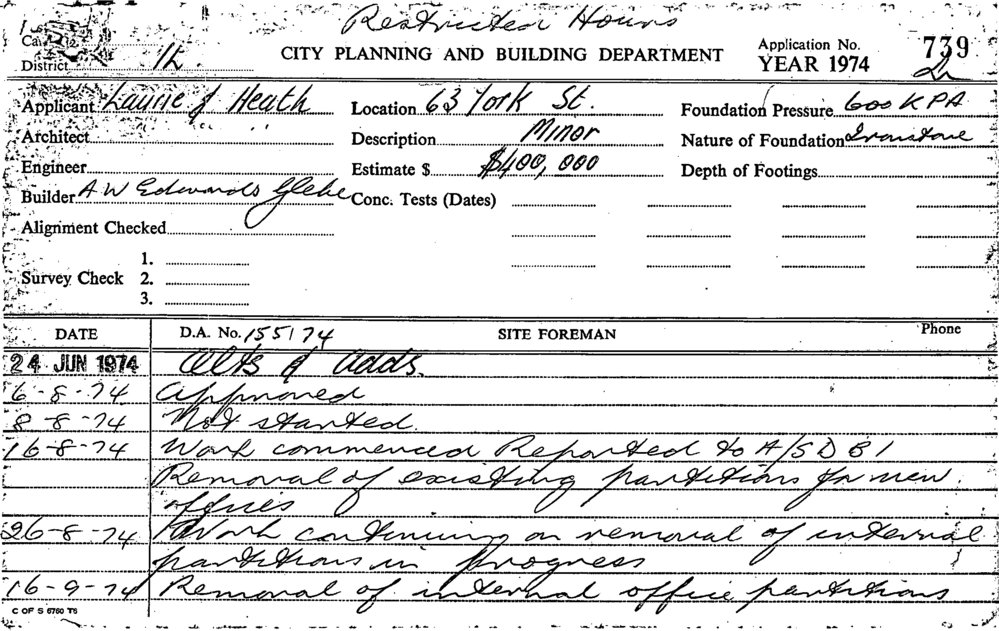 Restricted Hours
District 1L CITY PLANNING AND BUILDING DEPARTMENT Application No. 739
YEAR 1974 2
Applicant Laurie & Heath Location 63 York St. Foundation Pressure 600 KPA
Architect Description Minor Nature of Foundation Ironstone
Engineer Estimate $ $400,000 Depth of Footings
Builder A W Edwards Glebe Conc. Tests (Dates)
Alignment Checked
1.
Survey Check 2.
3.
DATE D.A. No. 155/74 SITE FOREMAN Phone
24 JUN 1974 Alts & Adds.
6-8-74 Approved
8-8-74 Not started.
16-8-74 Work commenced Reported to A/SDBI
Removal of existing partitions for new
offices
26-8-74 Work continuing on removal of internal
partitions in progress
16-9-74 Removal of internal office partitions
C OF S 6760 T5